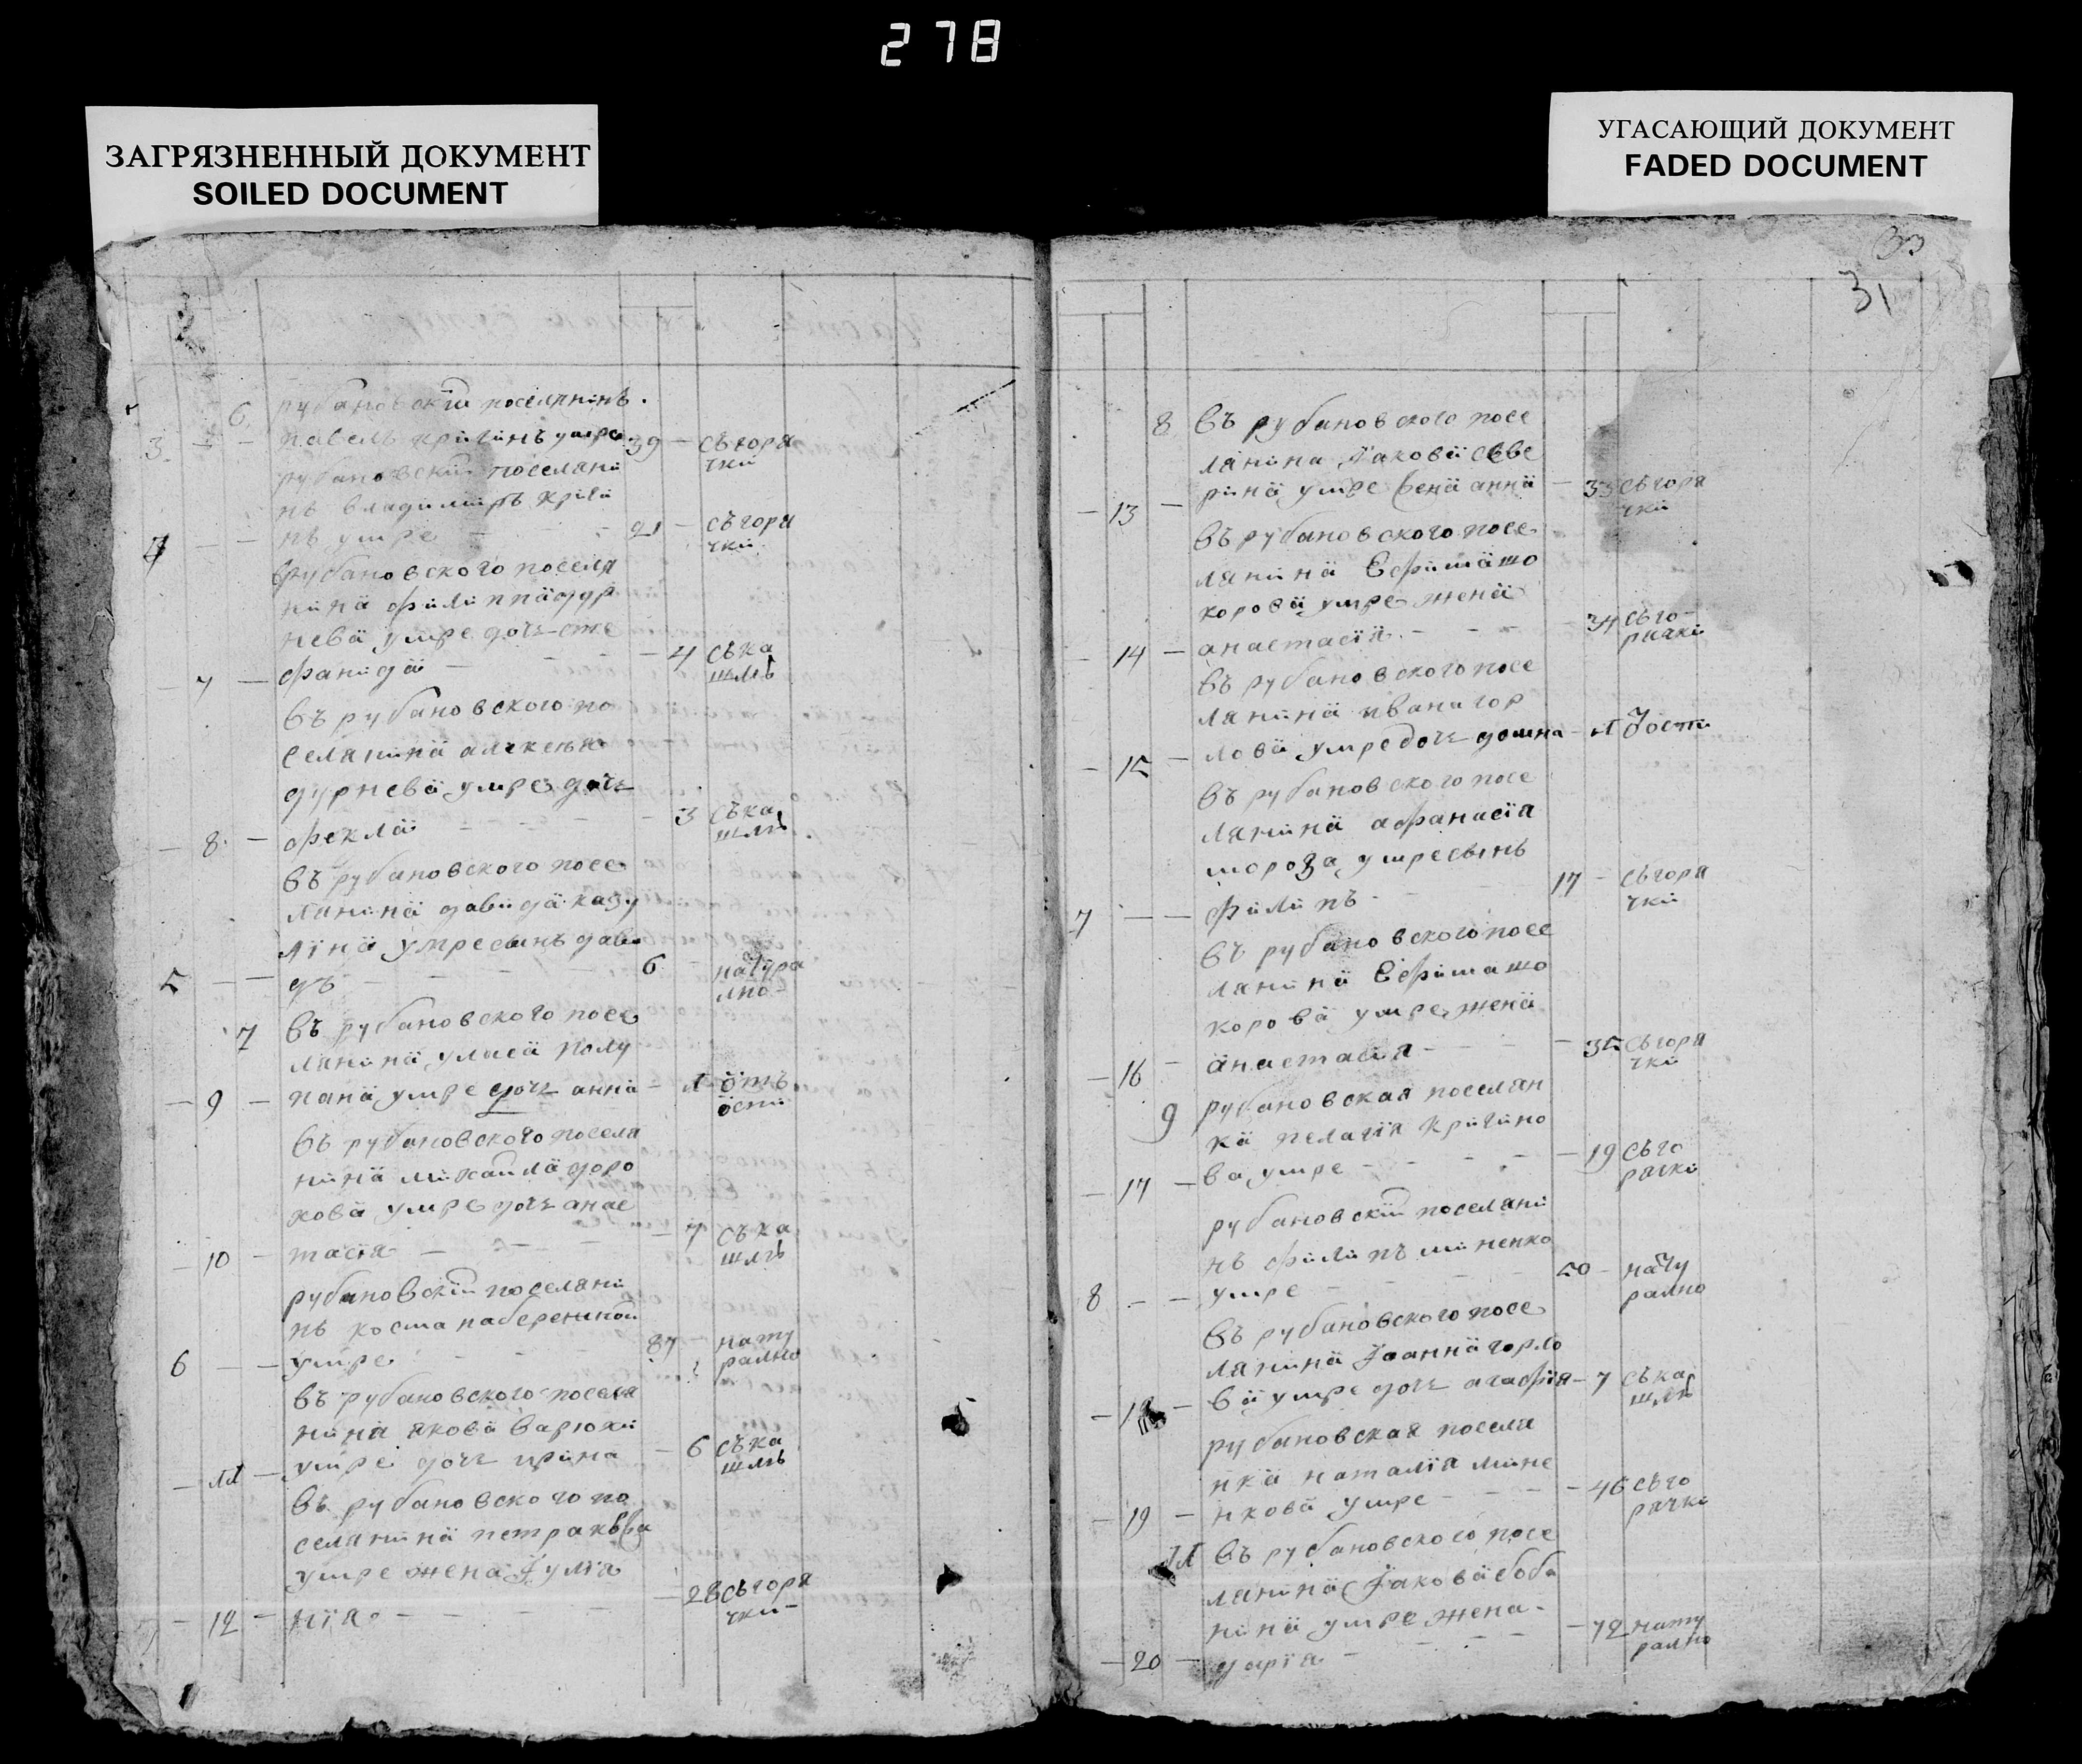 278
ЗАГРЯЗНЕННЫЙ ДОКУМЕНТ
SOILED DOCUMENT
УГАСАЮЩИЙ ДОКУМЕНТ
FADED DOCUMENT
33
31
6 рубановскїй поселянинъ
3 — — павелъ кричинъ умре 39 — съгоря
чки
рубановскїй поселяни
нъ владимиръ кричи
4 — — нъ умре — — 21 — съгоря
чки
врубановского поселя
нина филиппа дур
нева умре дочь сте
— 7 — фанида — — 4 съка
шлѣ
въ рубановского по
селянина алѣксѣя
дурнева умре дочь
— 8 — фекла — — 3 съка
шлѣ
въ рубановского посе
лянина давида казу
лїна умре сынъ дави
5 — — дъ — — 6 натура
лно
7 въ рубановского посе
лянина улиса полу
— 9 — пана умре дочь анна — 1 отъ
ости
въ рубановского поселя
нина михаила доро
хова умре дочь анас
— 10 — тасїя — — 7 съка
шлѣ
рубановскїй поселяни
нъ косма набережной
6 — — умре — — 87 — нату
рално
въ рубановского поселя
нина якова варюхи
— 11 — умре дочь ирина — 6 съка
шлѣ
въ рубановского по
селянина петра
умре жена Їулїа
— 12 — нїя — — 28 съгоря
чки
8 въ рубановского посе
лянина Їакова севе
— 13 — рина умре жена анна — 33 съгоря
чки
въ рубановского посе
лянина Ефима шо
корова умре жена
— 14 — анастасїя — — 34 съго
рячки
въ рубановского посе
лянина ивана гор
— 15 — лова умре дочь домна — 1 ѿости
въ рубановского посе
лянина афанасїя
мороза умре сынъ
7 — — филипъ — 17 — съгоря
чки
въ рубановского посе
лянина Ефима шо
корова умре жена
— 16 — анастасїя — — 35 съгоря
чки
9 рубановская поселян
ка пелагїя кричино
— 17 — ва умре — — 19 съго
рячки
рубановскїй поселяни
нъ филипъ миненко
8 — — умре — 50 — нату
рално
въ рубановского посе
лянина Їоанна горло
— 18 — ва умре дочь агафїя — 7 съка
шлѣ
рубановская поселя
нка наталїя мине
— 19 — нкова умре — — 46 съго
рячки
11 въ рубановского посе
лянина Їакова боба
нина умре жена
— 20 — дарїя — — 72 нату
рално